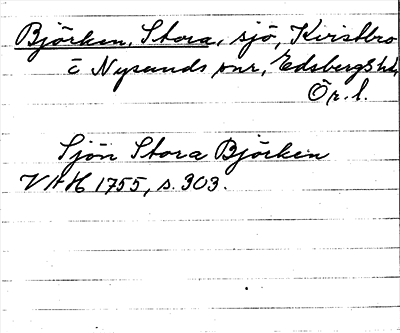 Björken, Stora, sjö, Kvistbro
o Nysunds snr, Edsbergs hd,
Ör. l.
Sjön Stora Björken
VAH 1755, s. 303.